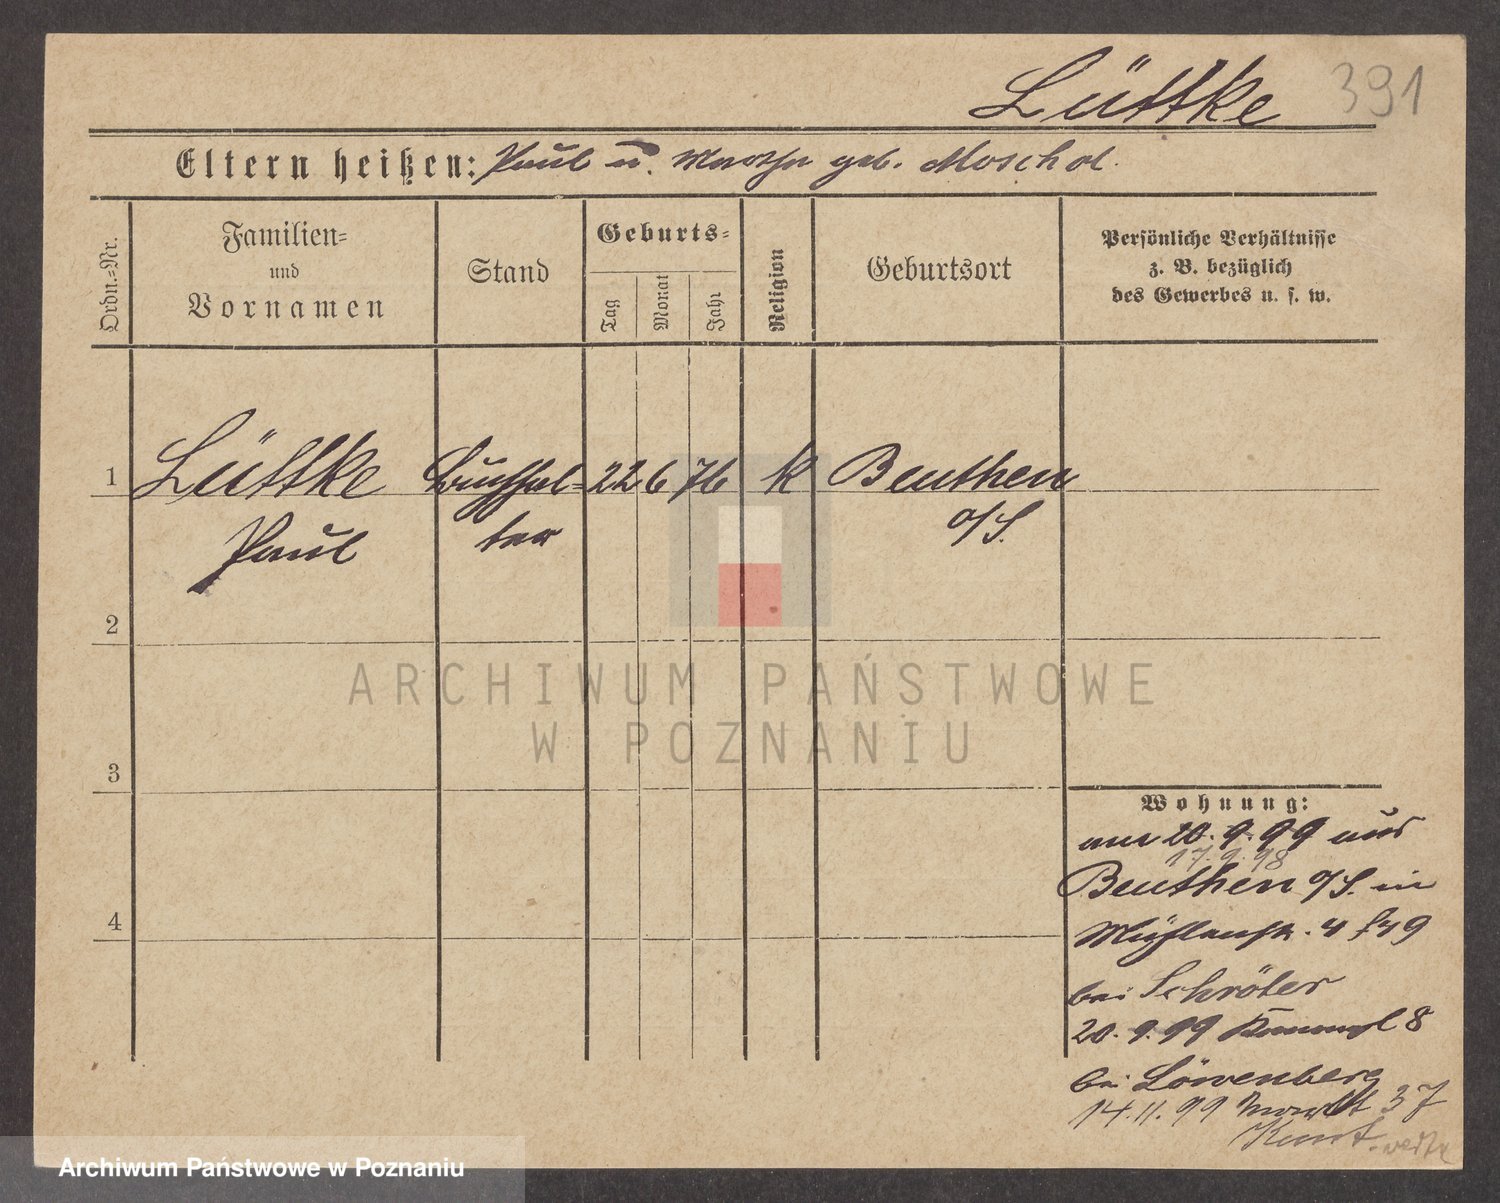 Lüttke 391
Eltern heißen: Paul u. Martha geb. Moschol
Ordn.=Nr.
Familien=
und
Vornamen
Stand
Geburts=
Tag
Monat
Jahr
Religion
Geburtsort
Persönliche Verhältnisse
z. B. bezüglich
des Gewerbes u. s. w.
1 Lüttke Buchhal= 22 6 76 k Beuthen
Paul ter o/S.
2
3
4
ARCHIWUM PAŃSTWOWE
W POZNANIU
Wohnung:
am 20.9.99 aus
17.9.98
Beuthen o/S. in
Mühlenstr. 4
bei Schröter
20.9.99 8
bei Löwenberg
14.11.99 Markt 37
Archiwum Państwowe w Poznaniu